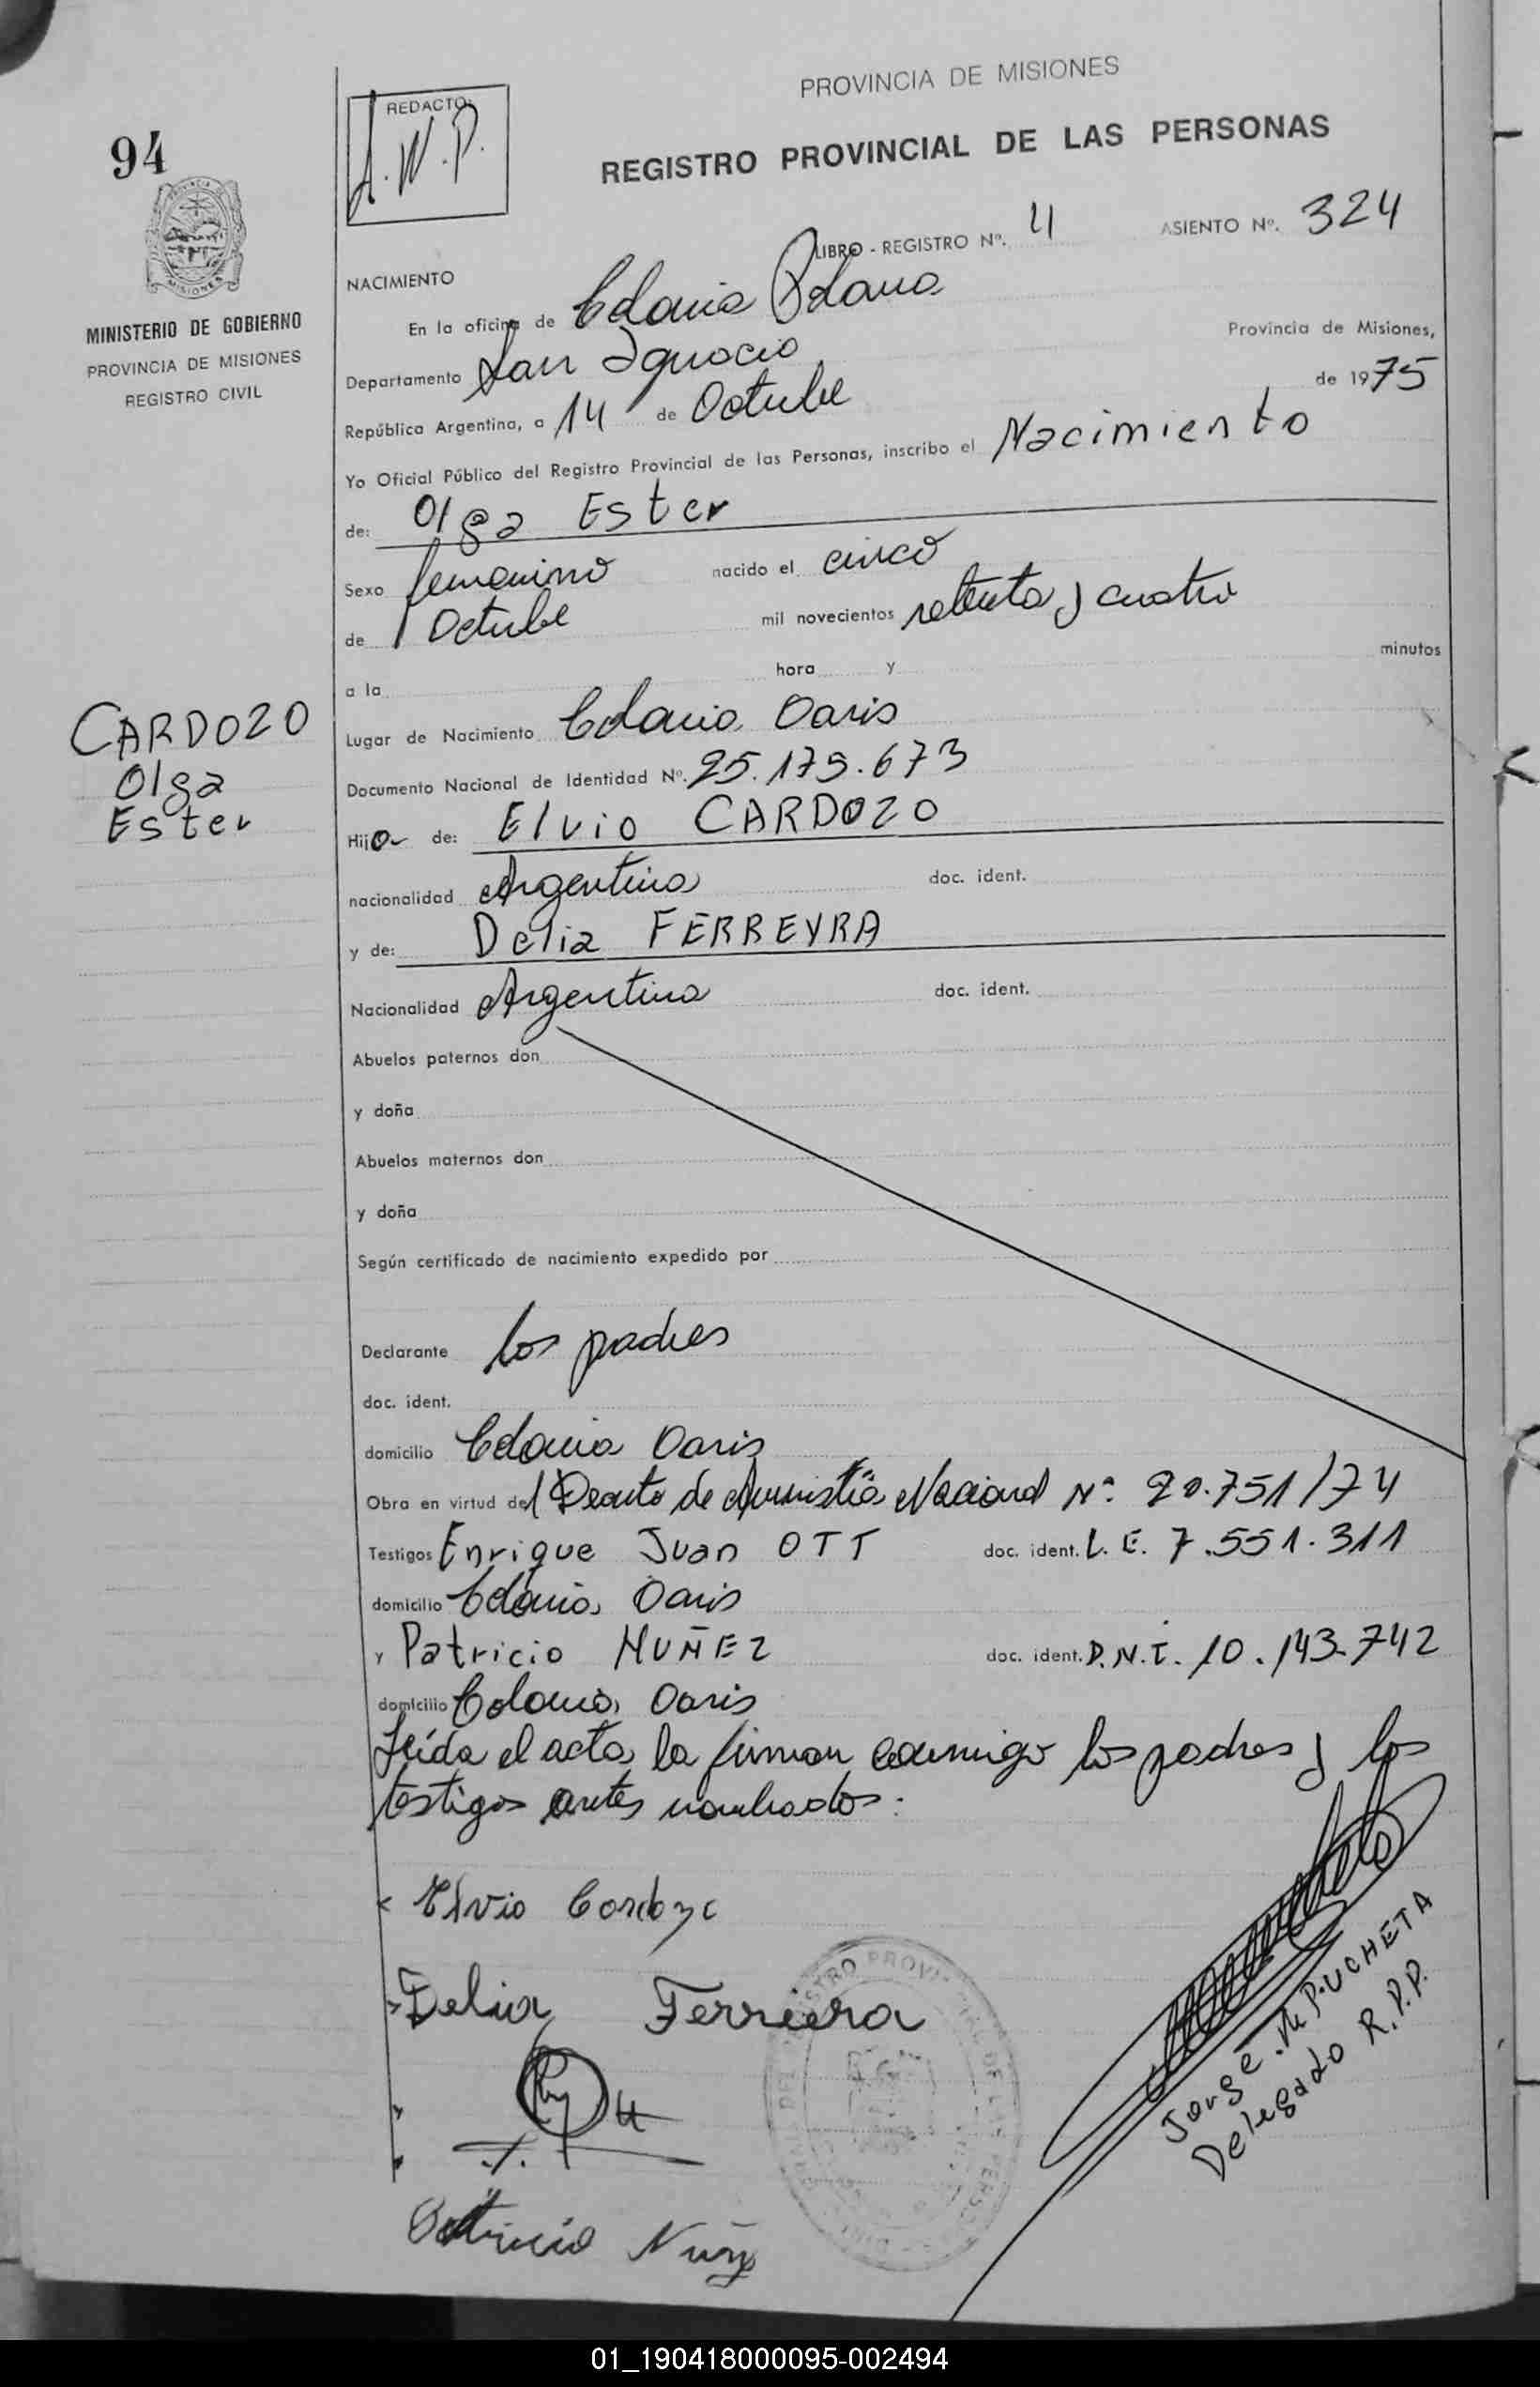 PROVINCIA DE MISIONES
94
REDACTO:
A.W.P.
REGISTRO PROVINCIAL DE LAS PERSONAS
LIBRO - REGISTRO Nº. 4 ASIENTO Nº. 324
MISIONES
MINISTERIO DE GOBIERNO
PROVINCIA DE MISIONES
REGISTRO CIVIL
NACIMIENTO
En la oficina de Colonia Polana
Provincia de Misiones,
Departamento San Ignacio
República Argentina, a 14 de Octubre de 1975
Yo Oficial Público del Registro Provincial de las Personas, inscribo el Nacimiento
de: Olga Ester
Sexo femenino nacido el cinco
de Octubre mil novecientos setenta y cuatro
a la hora y minutos
CARDOZO
Olga
Ester
Lugar de Nacimiento Colonia Oasis
Documento Nacional de Identidad Nº. 25.179.673
Hija de: Elvio CARDOZO
nacionalidad Argentina doc. ident.
y de: Delia FERREYRA
Nacionalidad Argentina doc. ident.
Abuelos paternos don
y doña
Abuelos maternos don
y doña
Según certificado de nacimiento expedido por
Declarante los padres
doc. ident.
domicilio Colonia Oasis
Obra en virtud del Decreto de Amnistía Nacional Nº 20.751/74
Testigos Enrique Juan OTT doc. ident. L.E. 7.551.311
domicilio Colonia Oasis
y Patricio NUÑEZ doc. ident. D.N.I. 10.143.742
domicilio Colonia Oasis
Leída el acta la firman conmigo los padres y los
testigos antes nombrados.
Elvio Cardozo
Delia Ferriera
Patricio Nuñez
Jorge M. PUCHETA
Delegado R.P.P.
01_190418000095-002494